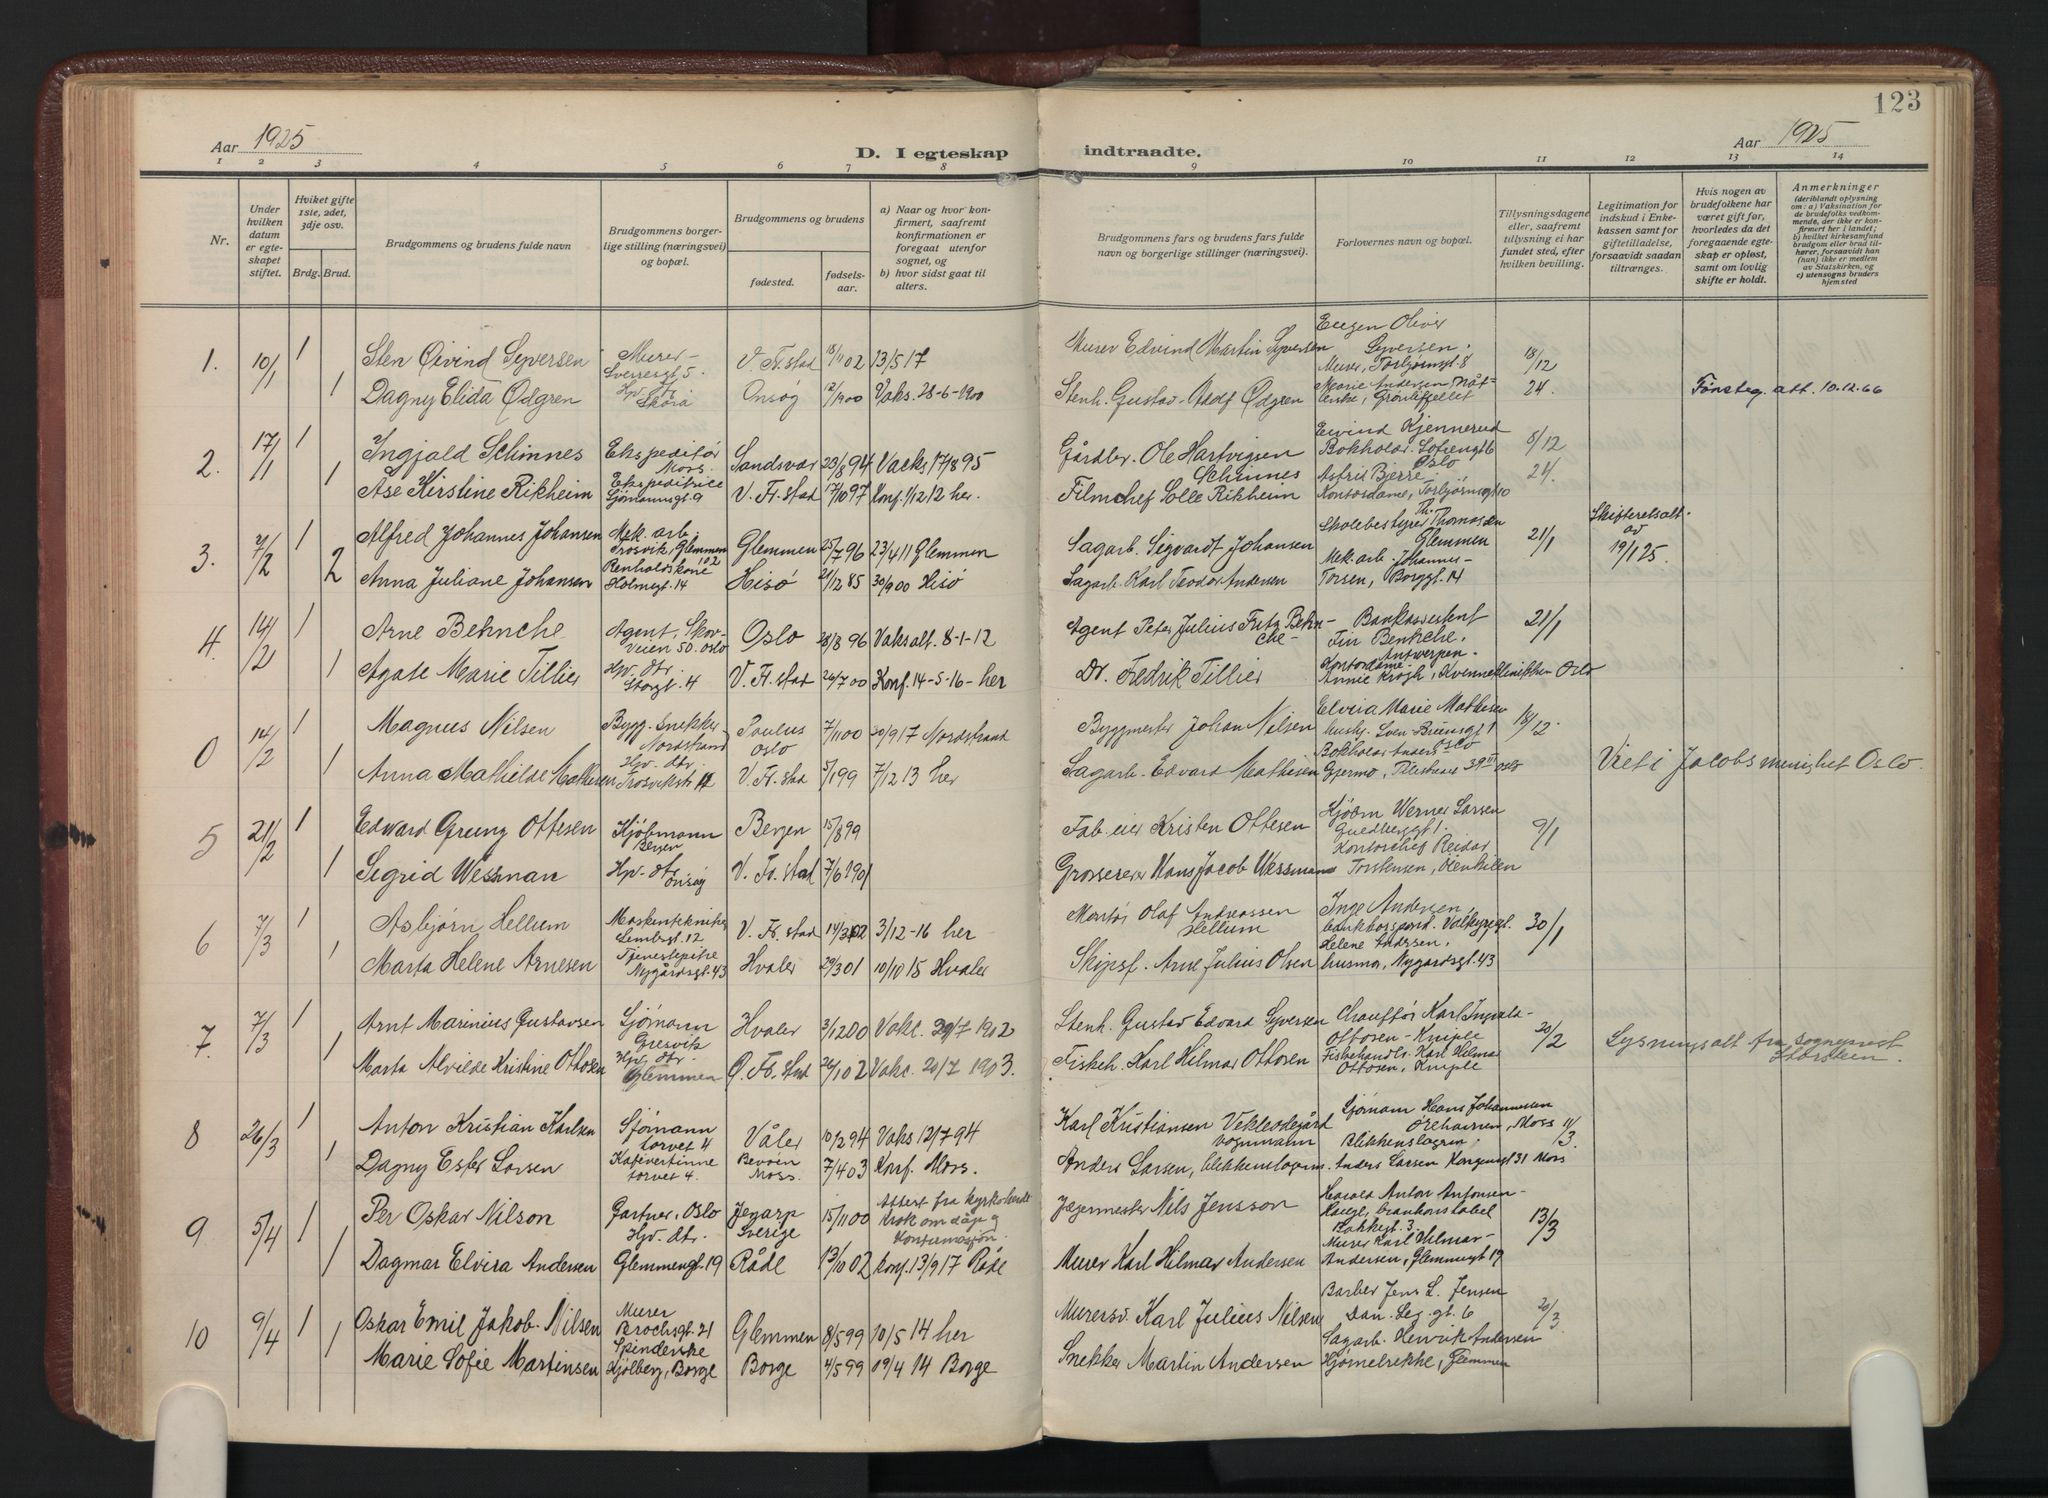 123
Aar 1925
D. I egteskap indtraadte.
Aar 1925
1 2 3 4 5 6 7 8 9 10 11 12 13 14
Nr.
Under hvilken datum er egteskapet stiftet.
Hviket gifte 1ste, 2det, 3dje osv.
Brdg. Brud.
Brudgommens og brudens fulde navn
Brudgommens borgerlige stilling (næringsvei) og bopæl.
Brudgommens og brudens
fødested.
fødselsaar.
a) Naar og hvor konfirmert, saafremt konfirmationen er foregaat utenfor sognet, og
b) hvor sidst gaat til alters.
Brudgommens fars og brudens fars fulde navn og borgerlige stillinger (næringsvei).
Forlovernes navn og bopæl.
Tillysningsdagene eller, saafremt tillysning ei har fundet sted, efter hvilken bevilling.
Legitimation for indskud i Enkekassen samt for giftetilladelse, forsaavidt saadan tiltrænges.
Hvis nogen av brudefolkene har været gift før, hvorledes da det foregaaende egteskap er opløst, samt om lovlig skifte er holdt.
Anmerkninger (deriblandt oplysning om: a) Vaksination for de brudefolks vedkommende, der ikke er konfirmert her i landet; b) hvilket kirkesamfund brudgom eller brud tilhører, forsaavidt han (hun) ikke er medlem av Statskirken, og c) utensogns bruders hjemsted
1. 10/1 1 Sten Øivind Syversen Murer Sverresgt 5. V. Fr.stad 18/11 02 13/5 17 Murer Edvind Martin Syversen Eugen Oliver Syversen. Murer, Torbjørnsgt. 8 18/12
1 Dagny Elida Ødgren Hp. dtr. Skara Onsøy 12/1900 Vaks. 28-6-1900 Stenh. Gustav Adolf Ødgren Marie Andersen, Grønlifjellet 24. Tønsteg. att. 10.12.66
2. 17/1 1 Ingjald Schinnes Ekspeditør Moss. Sandsvær 23/8 94 Vacks 17/8 95 Gårdbr. Ole Hartvigsen Schinnes Eivind Kjennerud Bokholder. Sofiengt 6 Oslo 5/12
1 Åse Kirstine Rikheim Ekspeditrice Sjømannsgt. 9 V. Fr. stad 17/10 97 Konf. 1/12 12 her. Filmchef Solle Rikheim Astrid Bjerre Kontordame, Torbjørnsgt 10 24.
3. 7/2 1 Alfred Johannes Johansen Mek. arb. Trosvik, Glemmen 102 Glemmen 25/7 96 23/4 11 Glemmen Sagarb. Sigvardt Johansen Skolebestyrer Th. Thomassen Glemmen 21/1 Skifteretsatt. av 19/1 25.
2 Anna Juliane Johansen Renholdskone Holmegt. 14 Hisø 21/12 85 30/9 00 Hisø Sagarb. Karl Teodor Andersen Mek. arb. Johannes Torsen, Borggt. 14
4. 14/2 1 Arne Behnche Agent, Skovveien 50. Oslo Oslo 28/8 96 Vaksatt. 8-1-12 Agent Peter Julius Fritz Behnche- Bankassistent Fin Benkche. Antwerpen. 21/1
1 Agate Marie Tillier Hp. dtr. Storgt. 4 V. Fr. stad 26/7 00 Konf. 14-5-16-her Dr. Fredrik Tillier Kontordame. Annie Krogh, Oslo
0 14/2 1 Magnus Nilsen Bygg. Snekker Nordstrand Paulus Oslo 7/11 00 20/9 17 Nordstrand Byggmester Johan Nilsen Elvira Marie Mathisen husm. Sven Bruunsgt 1 Oslo 18/12.
1 Anna Mathilde Mathisen Hp. dtr. Trosvikstr 14 V. Fr. stad 5/1 99 7/12 13 her Sagarb. Edvard Mathisen Bokholder Anders Gjermo, 39 III Oslo Viet i Jacobs menighet Oslo
5 21/2 1 Edward Grung Ottesen Kjøbmann Bergen Bergen 15/8 99 Fab. eier Kristen Ottesen Kjøbm Werner Larsen 9/1
1 Sigrid Wessman Hp. dtr Onsøy V. Fr. stad 7/6 1901 Grosserer Hans Jacob Wessman Kontorchef Reidar Torstensen, Ørenkilen
6 7/3 1 Asbjørn Hellum Maskintekniker Lembsgt. 12 V. Fr. stad 14/3 02 3/12-16 her Montør Olaf Andreassen Hellum Inge Andersen, bankkorspond. Valkyrjegt. 30/1
1 Marta Helene Arnesen Tjenestepike Nygårdsgt. 43 Hvaler 29/3 01 10/10 15 Hvaler Skipsf. Arne Julius Olsen Helene Andersen, husmo, Nygårdsgt. 43
7. 7/3 1 Arnt Marinius Gustavsen Sjømann Gresvik Hvaler 3/12 00 Vakc. 29/7 1902 Stenh. Gustav Edvard Syversen Chauffør Karl Ingvald Ottosen-Kniple 20/2 Lysningsatt fra sogneprest
1 Marta Alvilde Kristine Ottosen Hp. dtr. Glemmen Ø. Fr. Stad 26/1 02 Vakc. 20/7 1903. Fiskeh. Karl Hilmar Ottosen Fiskehandle. Karl Hilmar Ottosen, Kniple
8 26/3 1 Anton Kristian Karlsen Sjømann torvet 4 Våler 10/2 94 Vaks 12/7 94 Karl Kristiansen vognmann Sjømann Hans Johannessen Ørehavnen, Moss 11/3
1 Dagny Ester Larsen Kafevertinne torvet 4. Moss. 7/4 03 Konf. Moss. Anders Larsen, blikkenslagerm. Blikkenslagerm. Anders Larsen Kongensgt 31 Moss
9 5/4 1 Per Oskar Nilson Gartner, Oslo Sverige 15/11 00 Attest fra kyrkoherde Krok om dåp og Konfirmasjon Jægermester Nils Jensson Harald Anton Antonsen- Hauge, brankonstabel Bakkegt. 3. 13/3
1 Dagmar Elvira Andersen Hp. dtr. Glemmengt. 19 Råde 13/10 02 konf. 13/9 17 Råde Murer Karl Hilmar Andersen Murer Karl Hilmar Andersen, Glemmengt 19
10 9/4 1 Oskar Emil Jakob Nilsen Murer Brochsgt. 21 Glemmen 8/5 99 10/5 14 her Murersv. Karl Julius Nilsen Barber Jens L. Jensen Dan. Leg. gt. 6 20/3
1 Marie Sofie Martinsen Spinderske Kjølberg, Borge Borge 4/5 99 19/4 14 Borge Snekker Martin Andersen Sagarb. Henrik Andersen Hjørnelrekke, Glemmen